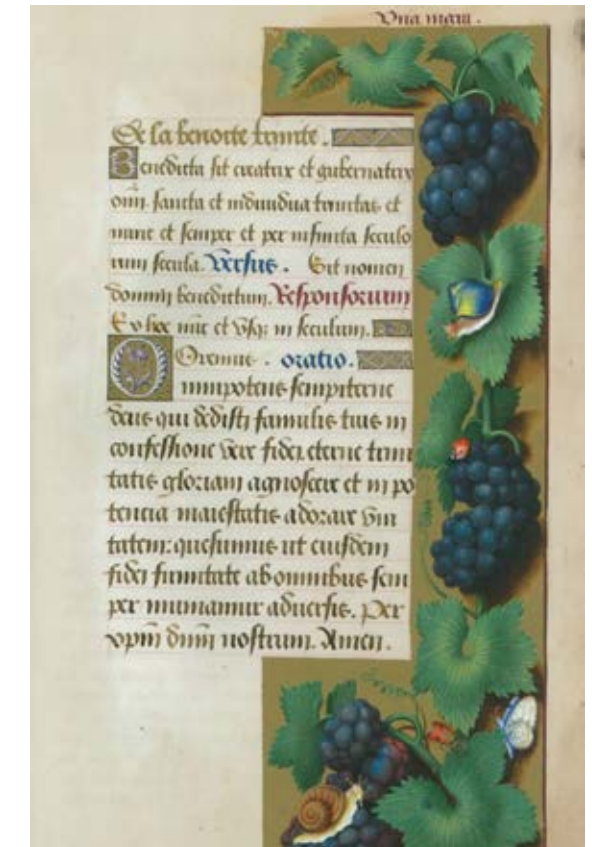 Vua magu.
De la benoite trinite.
Benedicta sit creatrix et gubernatrix
oim sancta et indiuidua trinitas et
nunc et semper et per infinita seculo
rum secula. Versus. Sit nomen
domini benedictum. Responsorium
Ex hoc nuc et vsqz in seculum.
Oremus. oratio.
Omnipotens sempiterne
deus qui dedisti famulis tuis in
confessione vere fidei eterne trini
tatis gloriam agnoscere et in po
tencia maiestatis adorare vni
tatem: quesumus ut eiusdem
fidei firmitate ab omnibus sem
per muniamur aduersis. Per
xpm dnm nostrum. Amen.